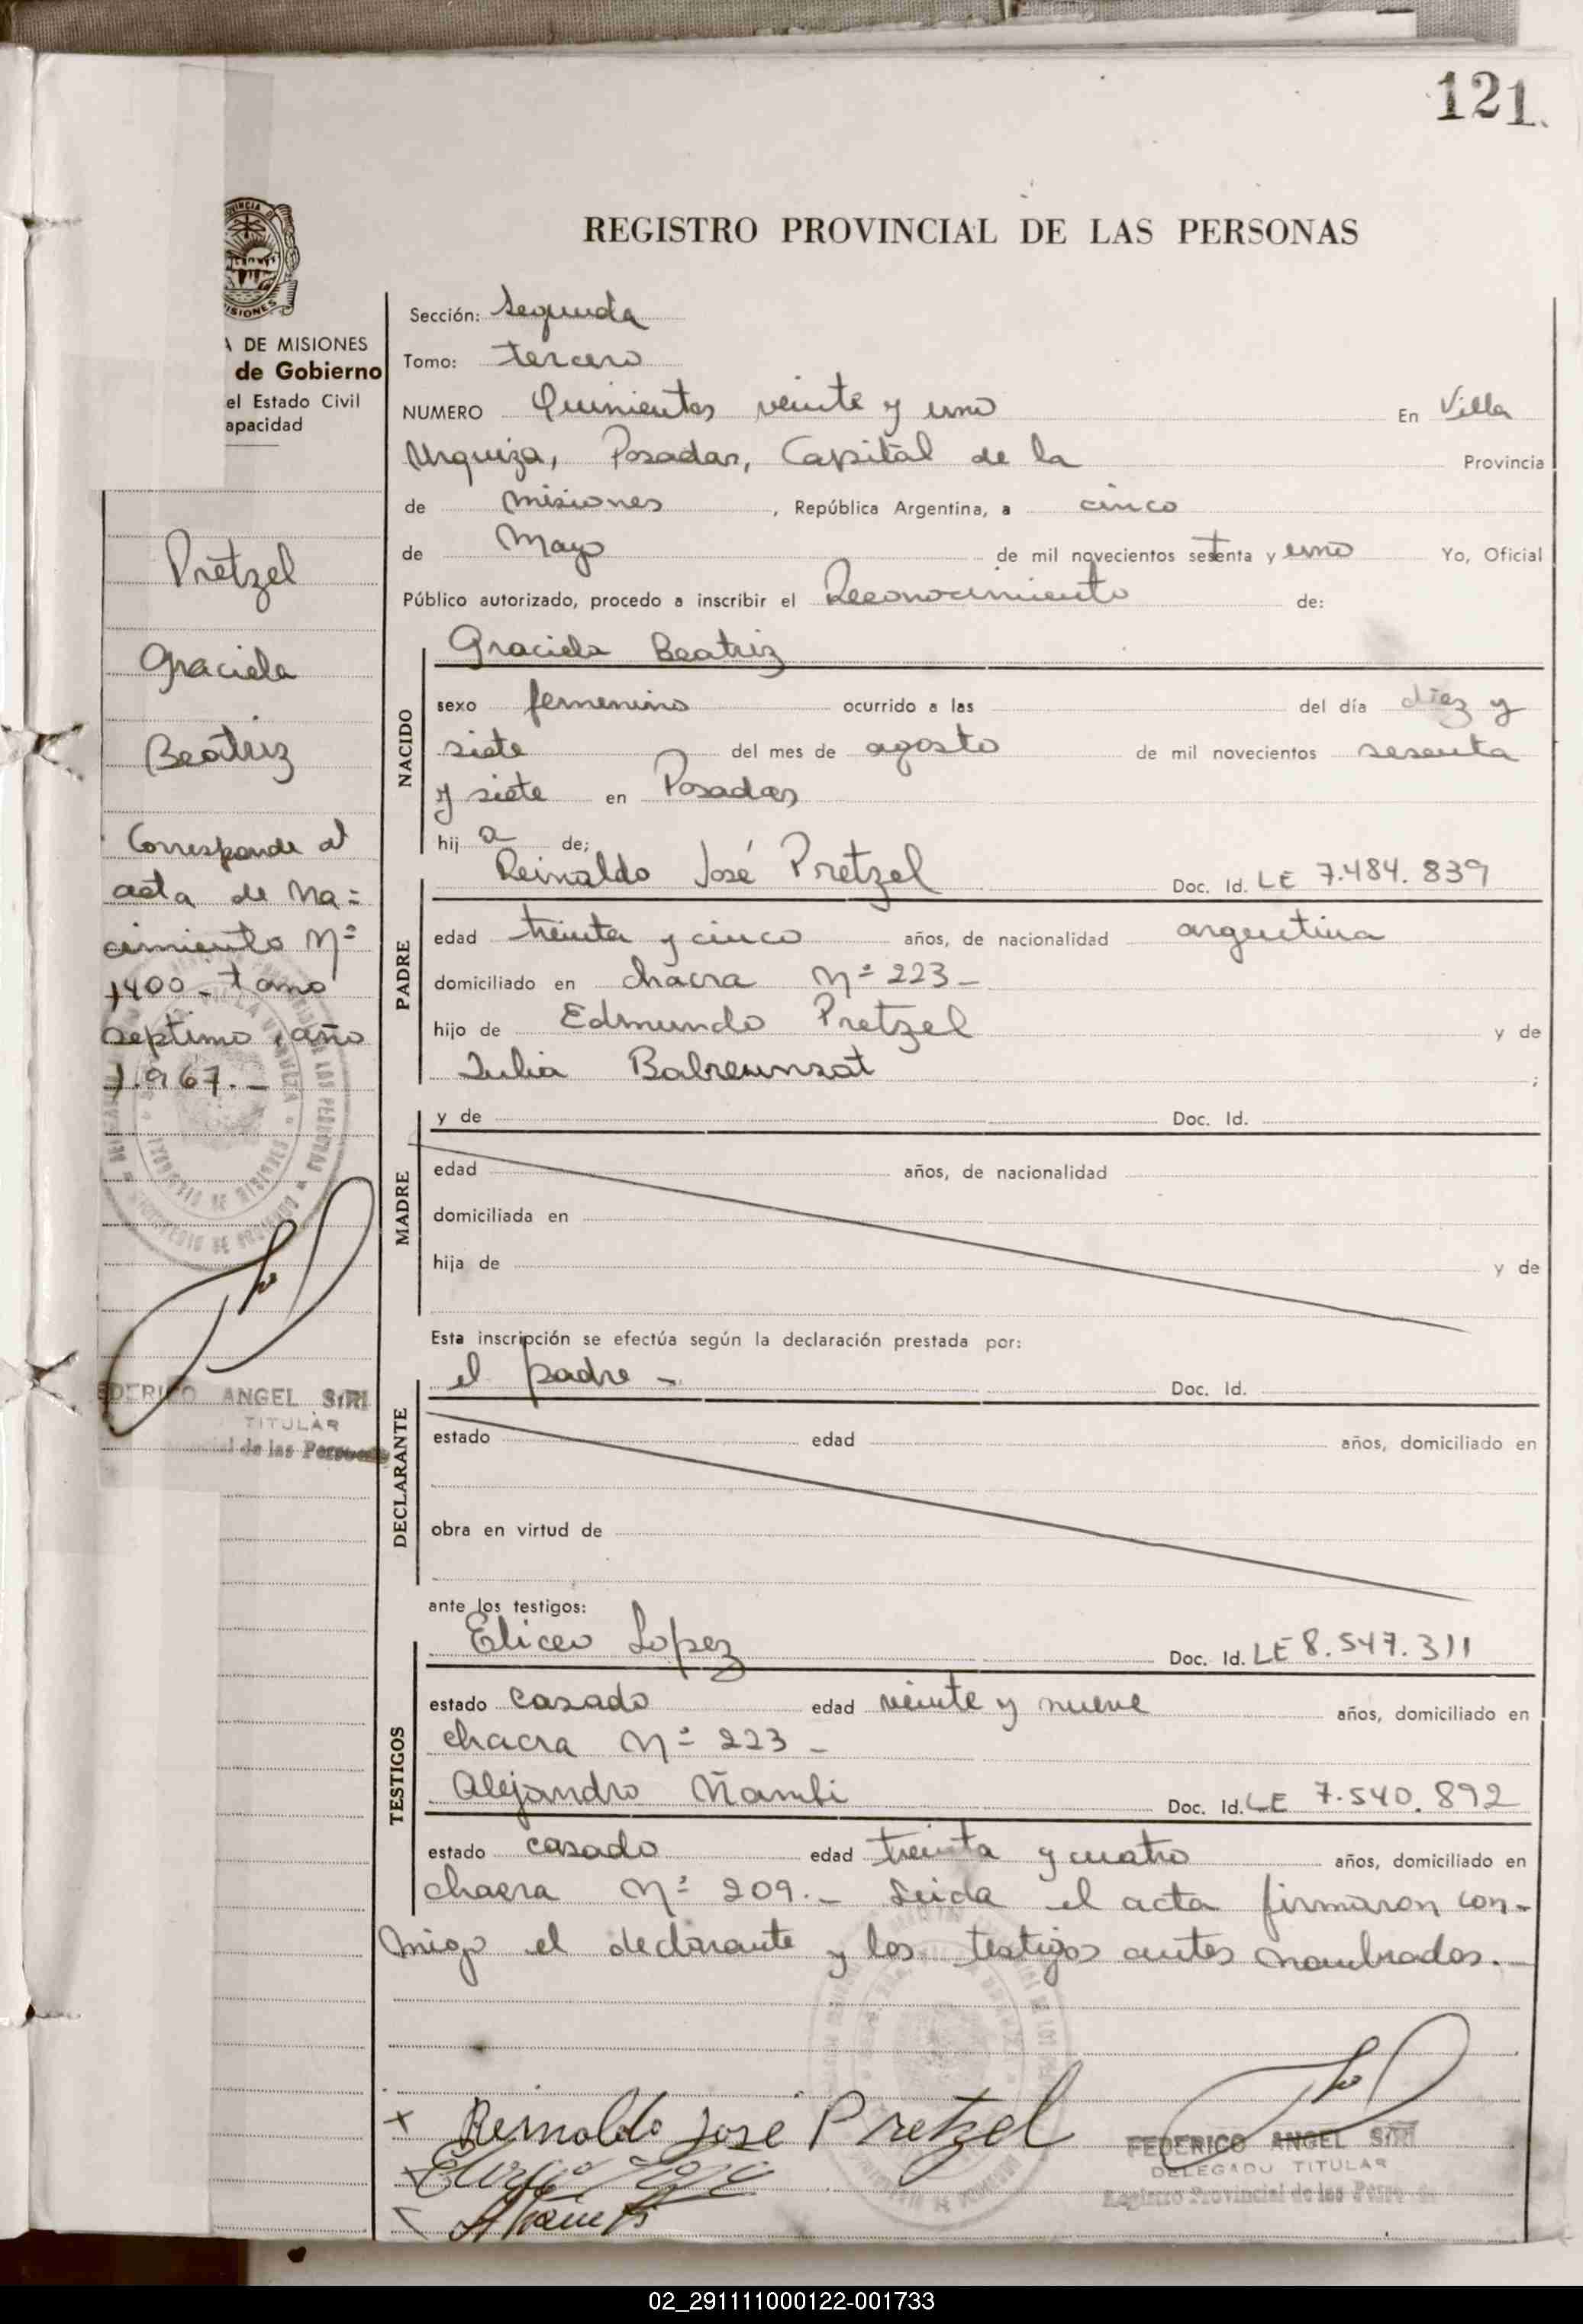 121.
REGISTRO PROVINCIAL DE LAS PERSONAS
PROVINCIA DE
MISIONES
A DE MISIONES
de Gobierno
el Estado Civil
apacidad
Sección: Segunda
Tomo: tercero
NUMERO Quinientos veinte y uno En Villa
Urquiza, Posadas, Capital de la Provincia
de Misiones, República Argentina, a cinco
de Mayo de mil novecientos setenta y uno Yo, Oficial
Público autorizado, procedo a inscribir el Reconocimiento de:
Pretzel
Graciela
Beatriz
Corresponde al
acta de Na=
cimiento Nº
1400 - tomo
septimo, año
1.967.-
EDERICO ANGEL SIRI
TITULAR
ial de las Personas
NACIDO
Graciela Beatriz
sexo femenino ocurrido a las del día diez y
siete del mes de agosto de mil novecientos sesenta
y siete en Posadas
hij a de;
PADRE
Reinaldo José Pretzel Doc. Id. LE 7.484.839
edad treinta y cinco años, de nacionalidad argentina
domiciliado en chacra Nº 223-
hijo de Edmundo Pretzel y de
Julia ;
MADRE
y de Doc. Id.
edad años, de nacionalidad
domiciliada en
hija de y de
Esta inscripción se efectúa según la declaración prestada por:
DECLARANTE
el padre - Doc. Id.
estado edad años, domiciliado en
obra en virtud de
ante los testigos:
TESTIGOS
Eliceo Lopez Doc. Id. LE 8.547.311
estado casado edad veinte y nueve años, domiciliado en
chacra Nº 223 -
Alejandro Ñambi Doc. Id. LE 7.540.892
estado casado edad treinta y cuatro años, domiciliado en
chacra Nº 209.- Leida el acta firmaron con-
migo el declarante y los testigos antes nombrados.-
x Reinaldo José Pretzel
FEDERICO ANGEL SIRI
DELEGADO TITULAR
Registro Provincial de las Perso
02_291111000122-001733